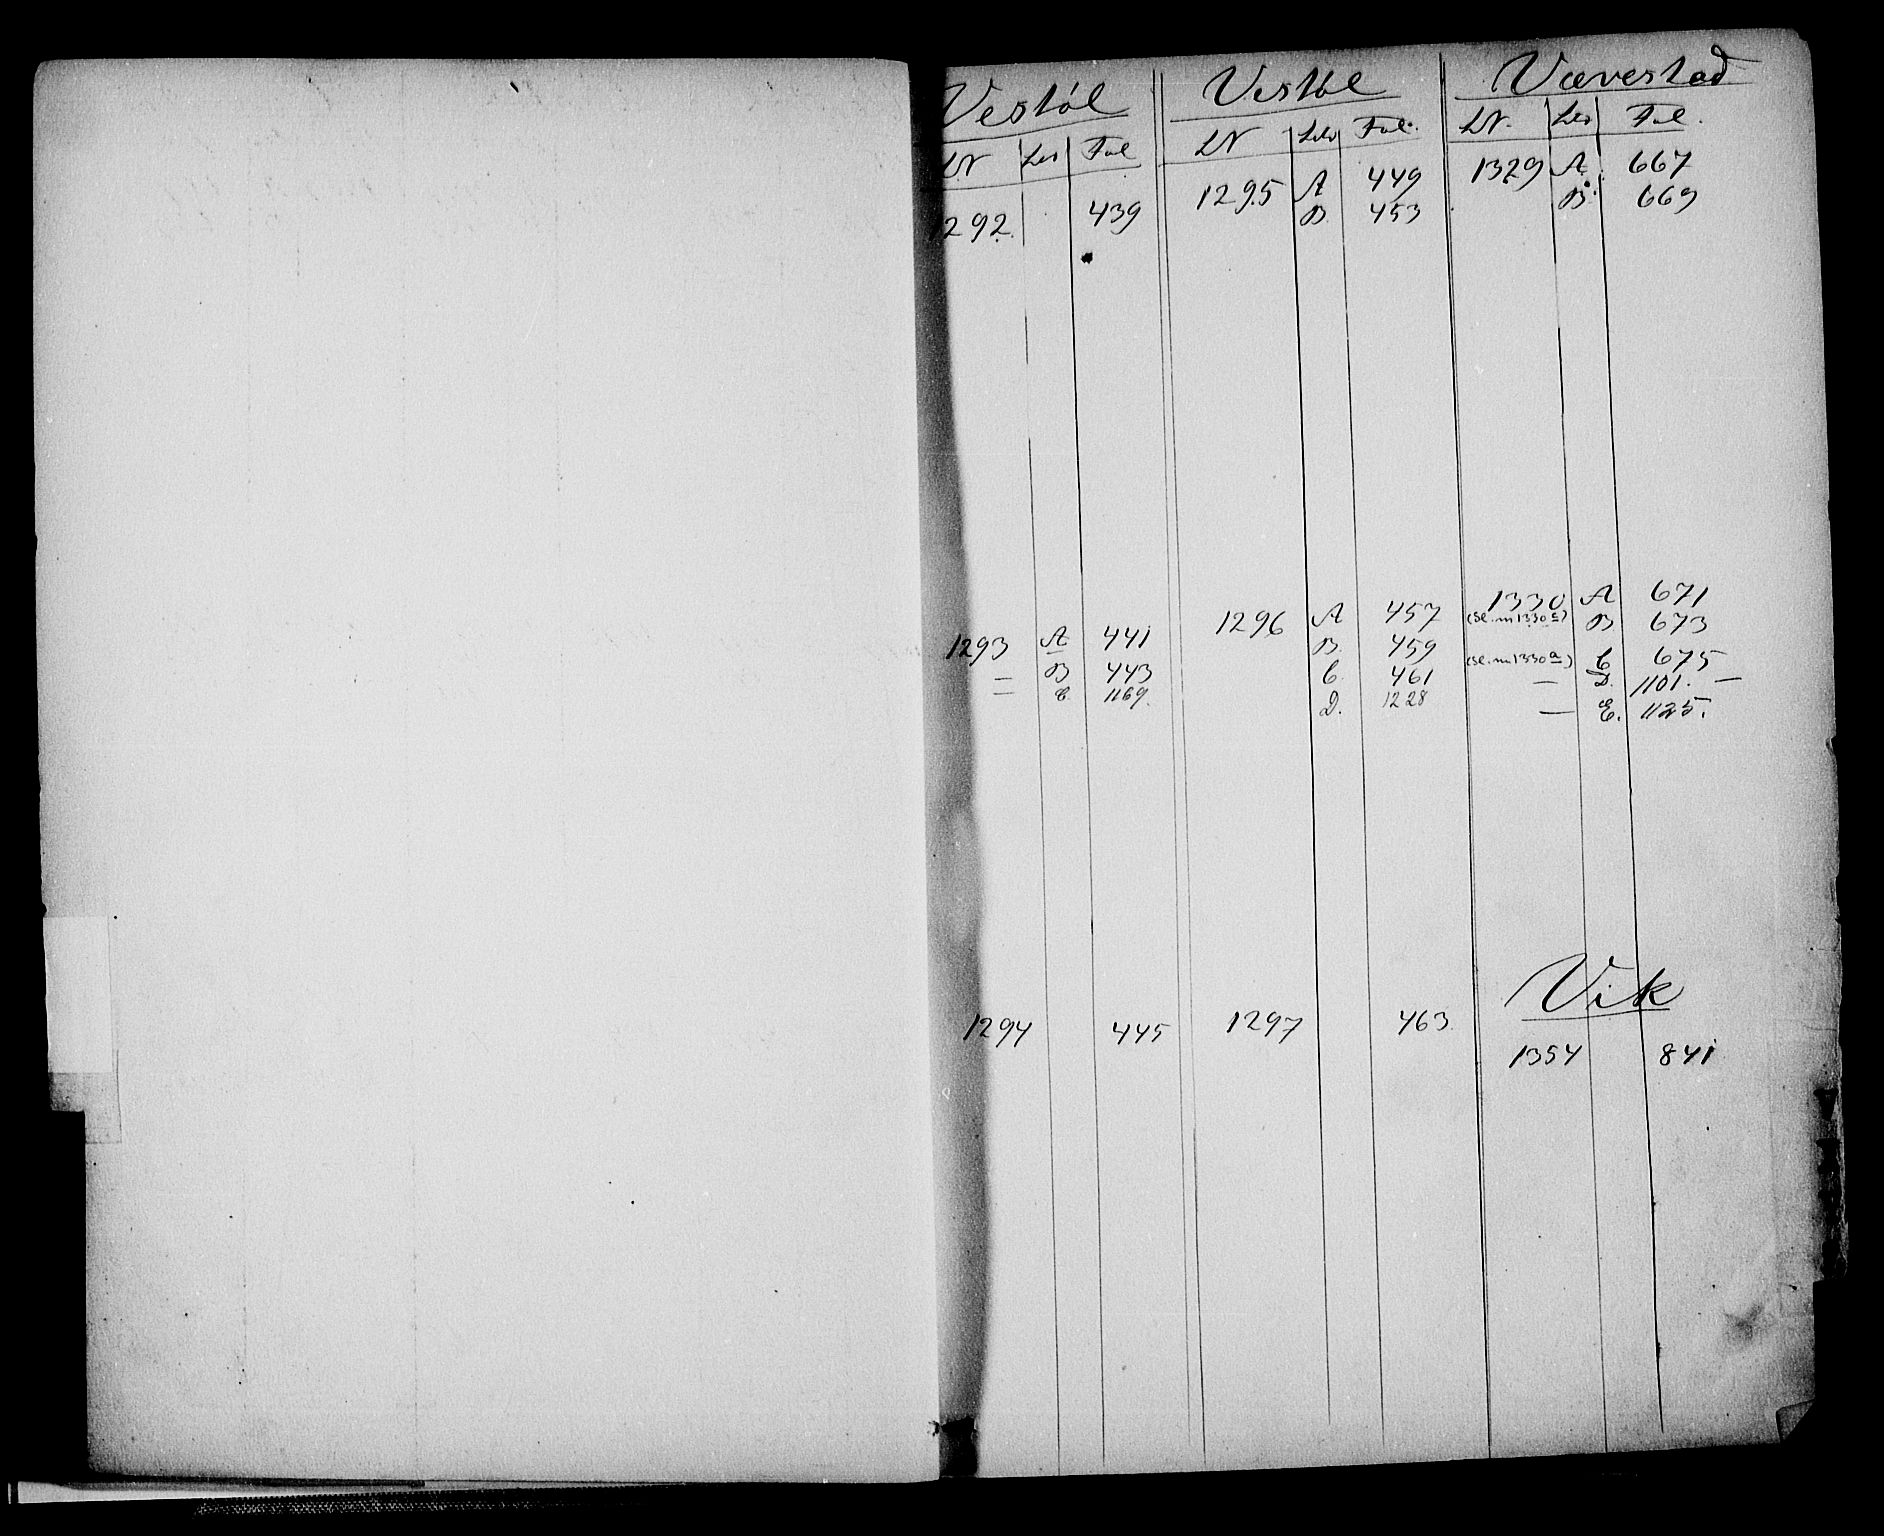 Vestøl
LN Lit Fol
1292. 439
1293 A 441
— B 443
— C 1169.
1294 445
Vestøl
LN Fol.
1295 A 449
B. 453
1296 A 457
B. 459
C. 461
D. 1228
1297 463.
Vævestad
LN. Fol.
1329 A. 667
B. 669
1330 A 671
(Sk.m 1330c) B 673
(Sk.m 1330a) C 675
— D. 1101. —
— E. 1125.
Vik
1354 841